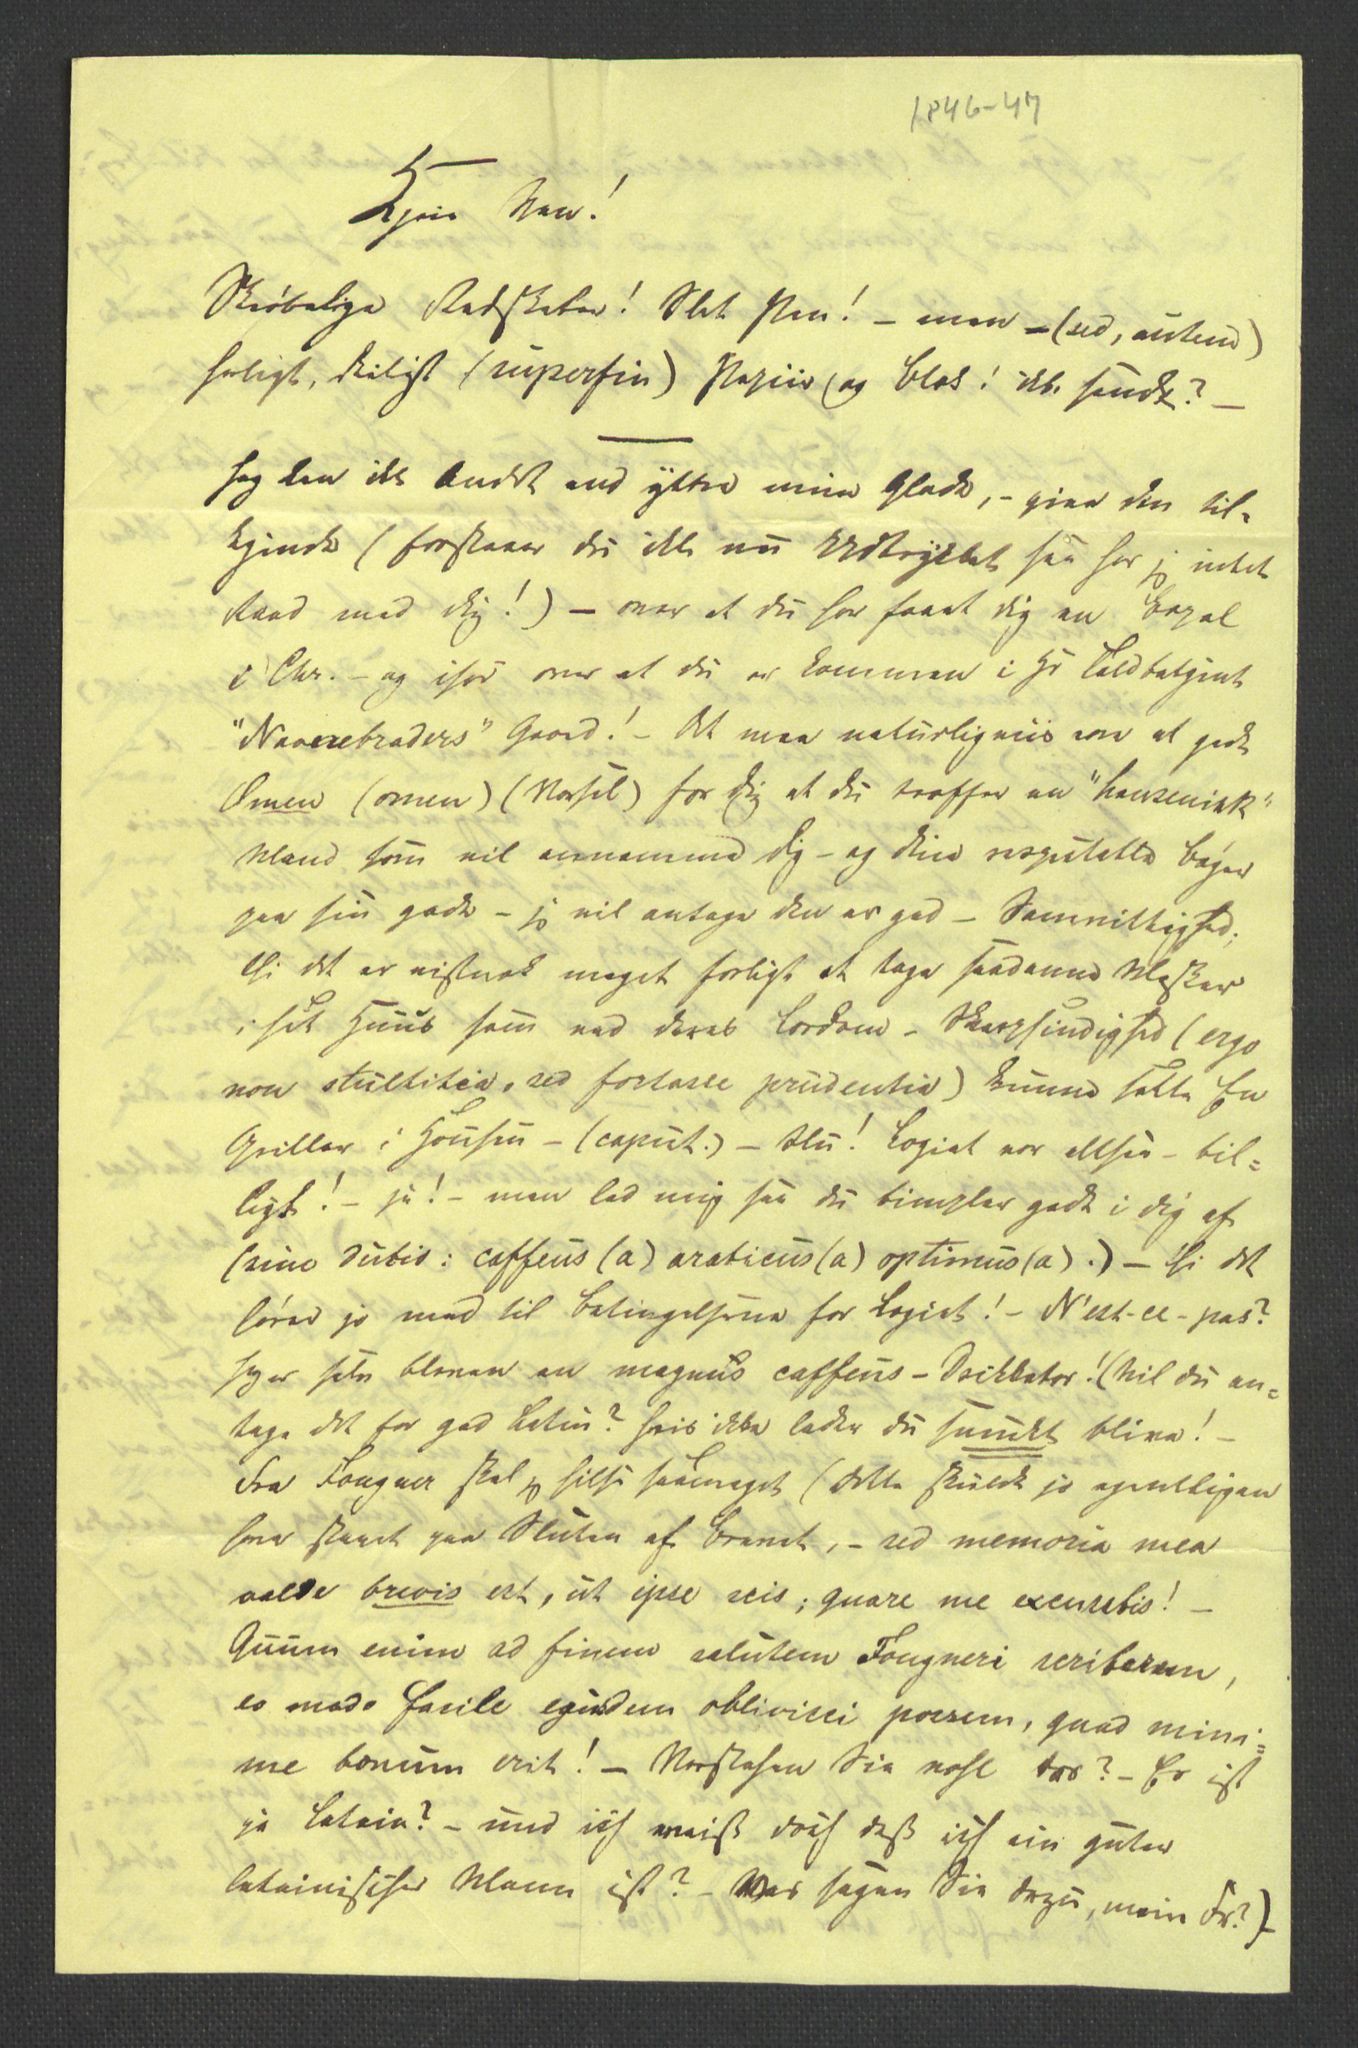 1846-47
Kjære Ven!
Skrøbelige Redskaber! Slet Pen! – men – (sed, autem)
herligt, deiligt (superfin) Papiir (og Blæk! ikke sandt? –
Jeg kan ikke Andet end yttre min Glæde, – give den til=
kjende (forstaaer du ikke nu Udtrykket saa har jeg intet
Raad med dig!) – over at du har faaet dig en
i Chr. – og især over at du er kommen i Hr
"Naverebraders" Gaard! – Det maa naturligviis være et godt
Omen (omen) (Varsel) for dig at du træffer en
Mand som vil annamme dig – og dine respektable Bøger
paa sin gode – jeg vil antage den er god – Samvittighed;
thi det er vistnok meget farligt at tage saadanne Mæsker
i sit Huus som ved deres Lærdom – Skarpsindighed (ergo
non stultitia, sed fortasse prudentia) kunne sætte En
Griller i Housen – (caput.) – Nu! Logiet var altsaa – bil=
ligt! – ja! – men lad mig see du bimpler godt i dig af
(sine dubio: caffeus (a) arabicus (a) optimus (a).) – thi det
hører jo med til Betingelserne for Logiet! – N'est-ce-pas?
Jeg er selv bleven en magnus caffeus – Drikkator! (Vil du an=
tage det for god Latin? hvis ikke lader du saadant blive! –
Fra Fougner skal jeg hilse saameget (dette skulde jo egentligen
have staaet paa Slutten af Brevet, – sed memoria mea
valde brevis est, ut ipse scis; quare me excusabis! –
Quum enim ad finem salutem Fougneri scriberem,
eo modo facile ejusdem oblivisci possem, quod mini=
me bonum erit! – Verstehen Sie wohl das? – Es ist
ja Latein? – und ich weiß doch daß ich ein guter
lateinischer Mann ist? – Was sagen Sie dazu, mein Fr.?) –